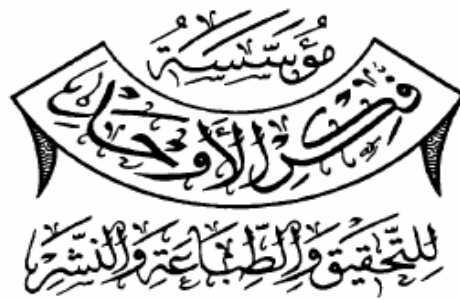 مُؤَسَّسَة
فِكْرِ الأَوْحَدِ
لِلتَّحْقِيقِ وَالطِّبَاعَةِ وَالنَّشْرِ